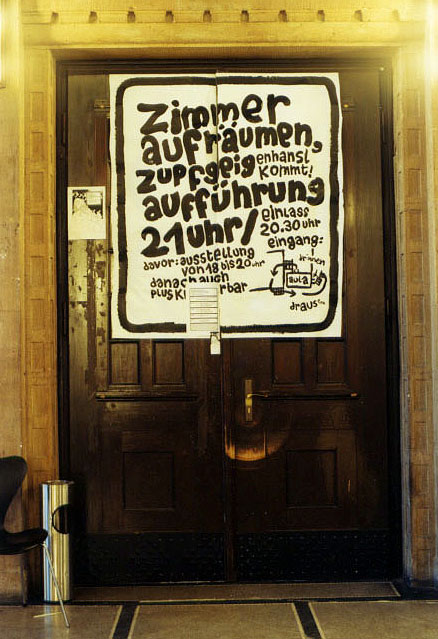 zimmer
aufräumen,
zupfgeigenhansl
kommt!
aufführung
21uhr/ einlass
20.30uhr
davor: ausstellung
von 18 bis 20uhr
eingang:
drinnen
aula
draus
danach auch
plus bar